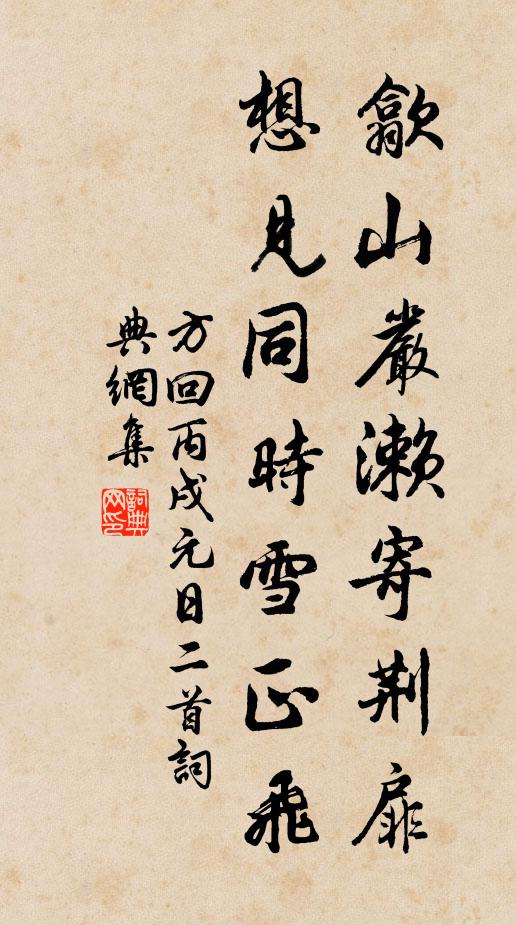 歙山嚴瀨寄荆扉
想見同時雪正飛
方回丙戌元日二首詞
典網集
詞典網印